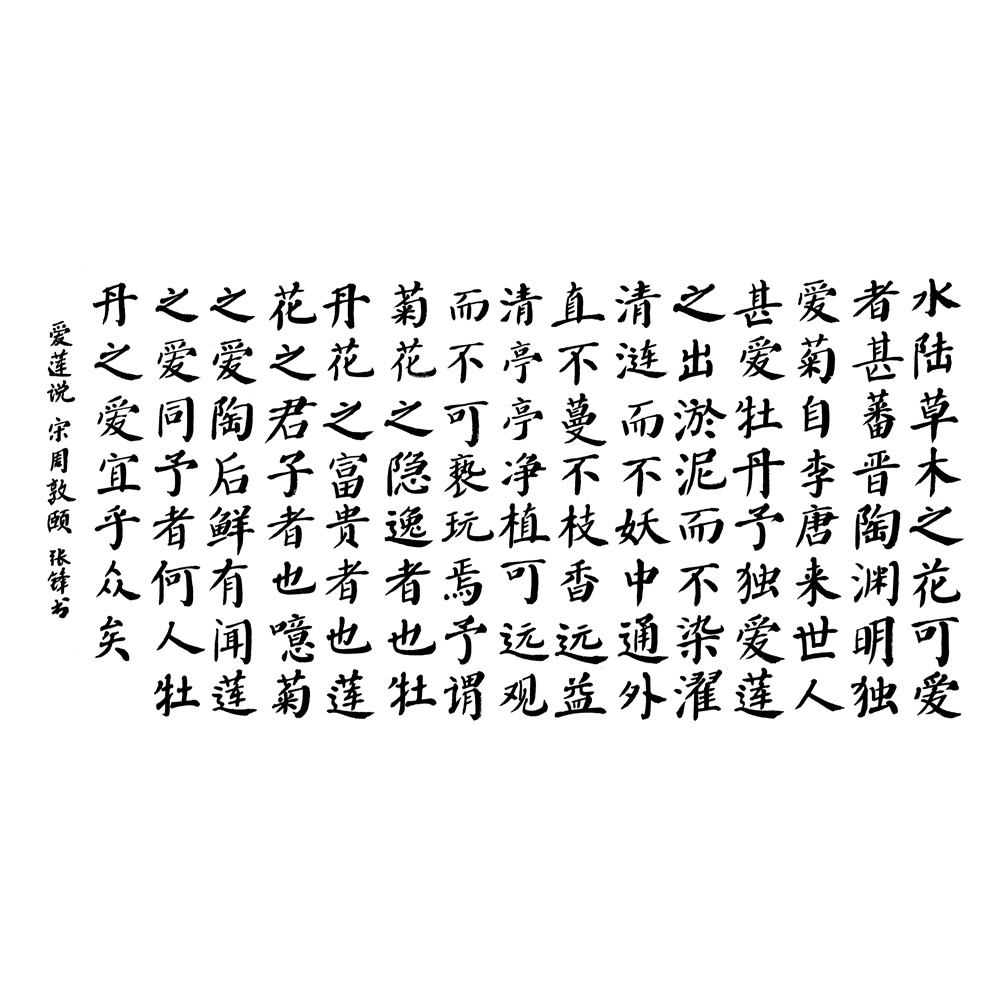 水陆草木之花可爱
者甚蕃晋陶渊明独
爱菊自李唐来世人
甚爱牡丹予独爱莲
之出淤泥而不染濯
清涟而不妖中通外
直不蔓不枝香远益
清亭亭净植可远观
而不可亵玩焉予谓
菊花之隐逸者也牡
丹花之富贵者也莲
花之君子者也噫菊
之爱陶后鲜有闻莲
之爱同予者何人牡
丹之爱宜乎众矣
爱莲说 宋周敦颐 张锋书